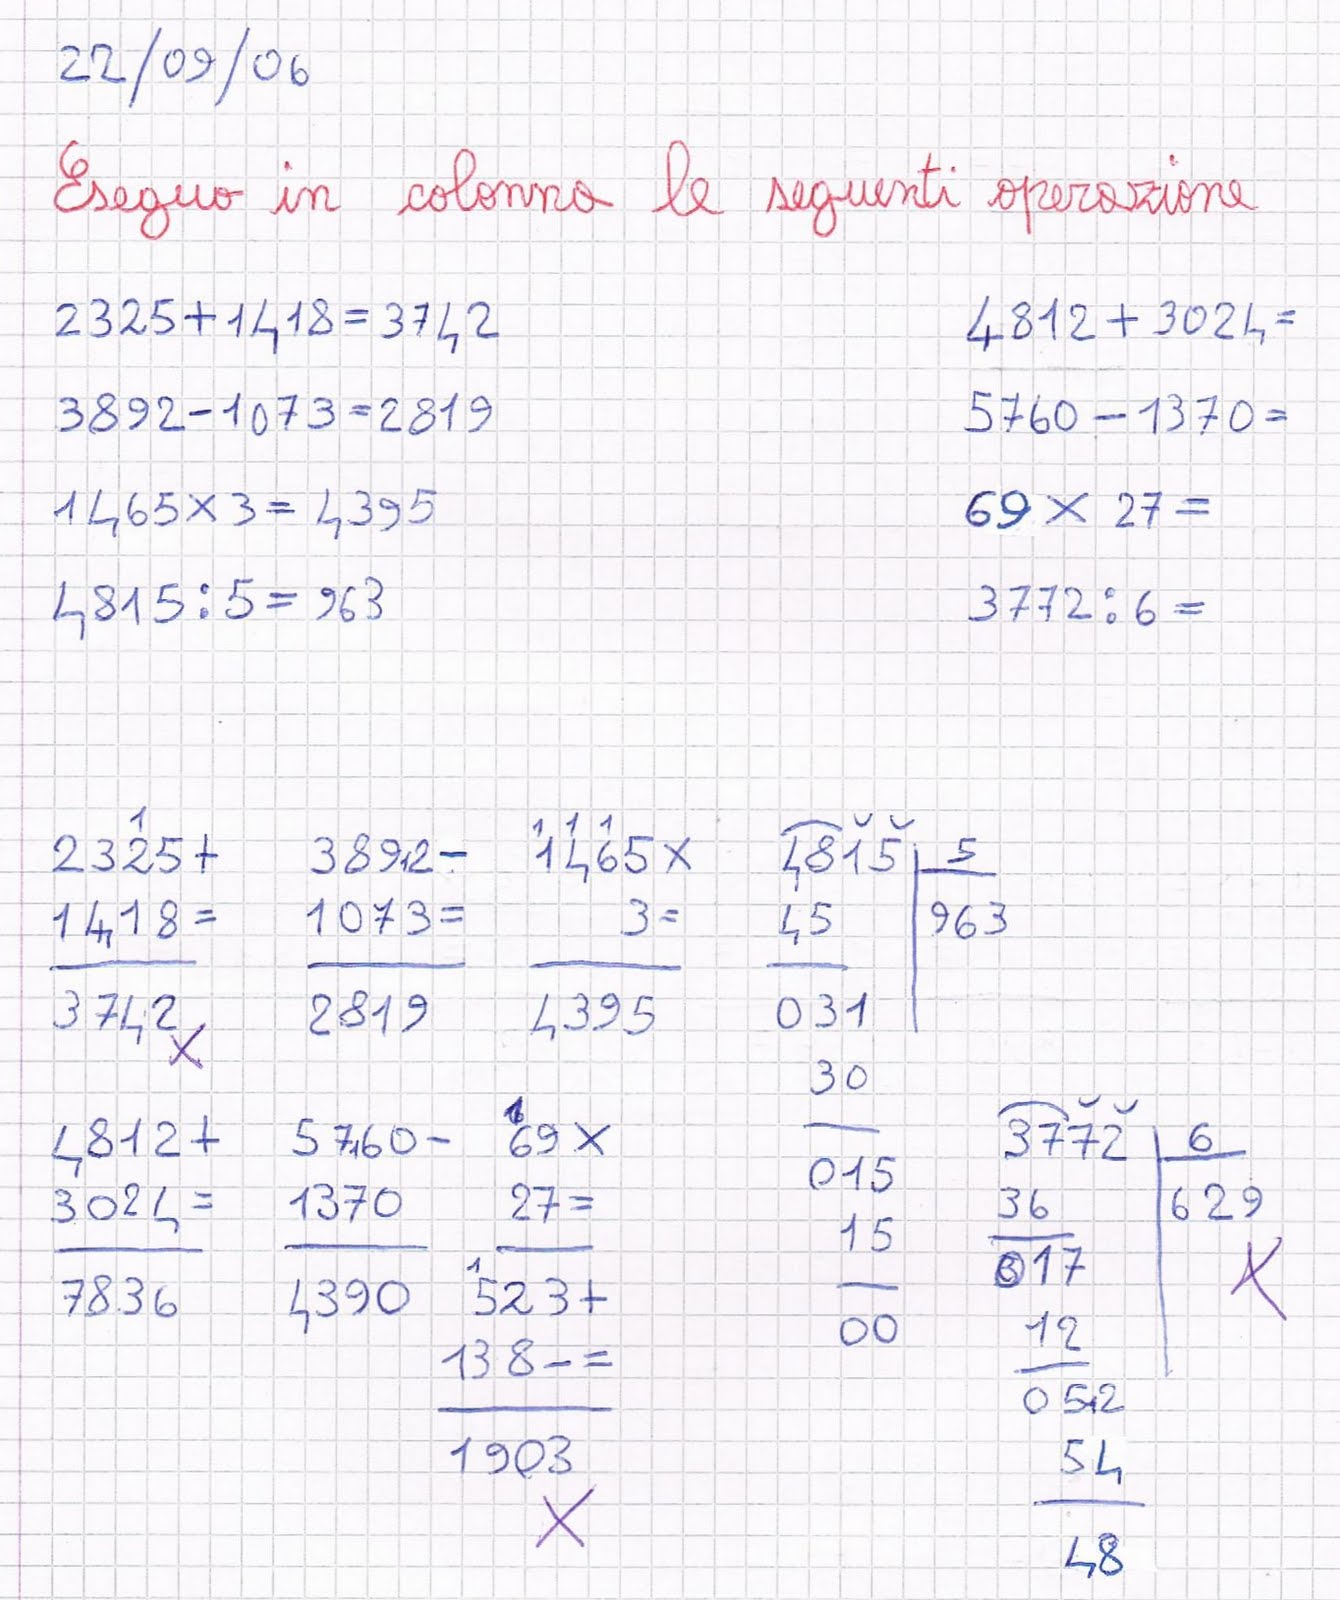 22/09/06
Eseguo in colonna le seguenti operazione
2325+1418=3742 4812+3024=
3892-1073=2819 5760-1370=
1465×3=4395 69×27=
4815:5=963 3772:6=
1
2325+
1418=
3742
×
3892-
1073=
2819
1 1 1
1465×
3=
4395
4815 5
45 963
031
30
015
15
00
4812+
3024=
7836
57160-
1370
4390
1
69×
27=
1
523+
138-=
1903
×
3772 6
36 629
017 ×
12
052
54
48